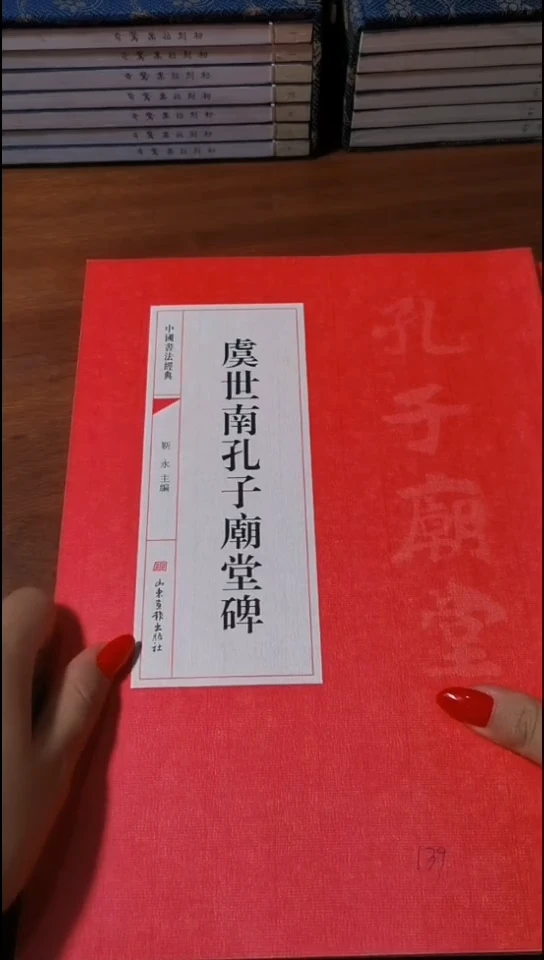 虞世南孔子廟堂碑
中國書法經典
靳永 主編
山东画报出版社
孔子廟堂
139